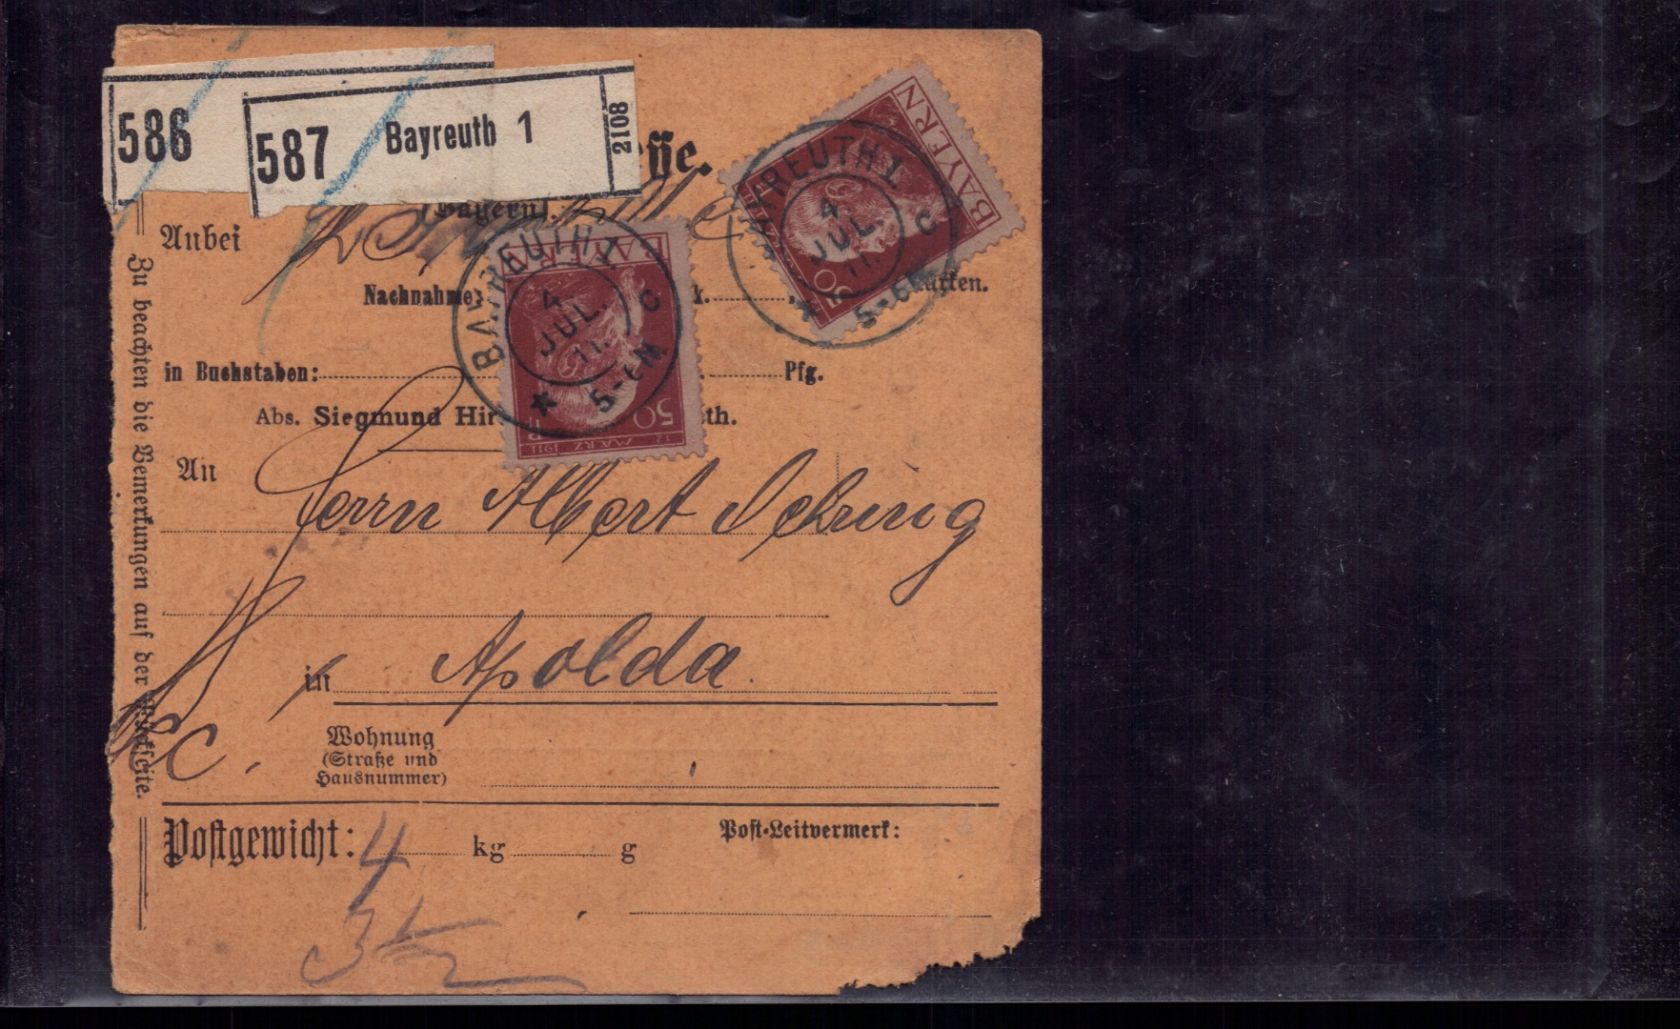 586
587 Bayreuth 1 2108
(Bayern).
Anbei
BAYREUTH 1
4
JUL.
11.
5-6N
C
BAYERN
50
12 MÄRZ 1911
BAYREUTH 1
4
JUL.
11.
5-6N
C
BAYERN
50
Nachnahme:
in Buchstaben: Pfg.
Abs. Siegmund Hir th.
An
Herrn Albert
in Apolda
Wohnung
(Straße und
Hausnummer)
Postgewicht: 4 kg g
3 1/2
Post-Leitvermerk:
Zu beachten die Bemerkungen auf der Rückseite.